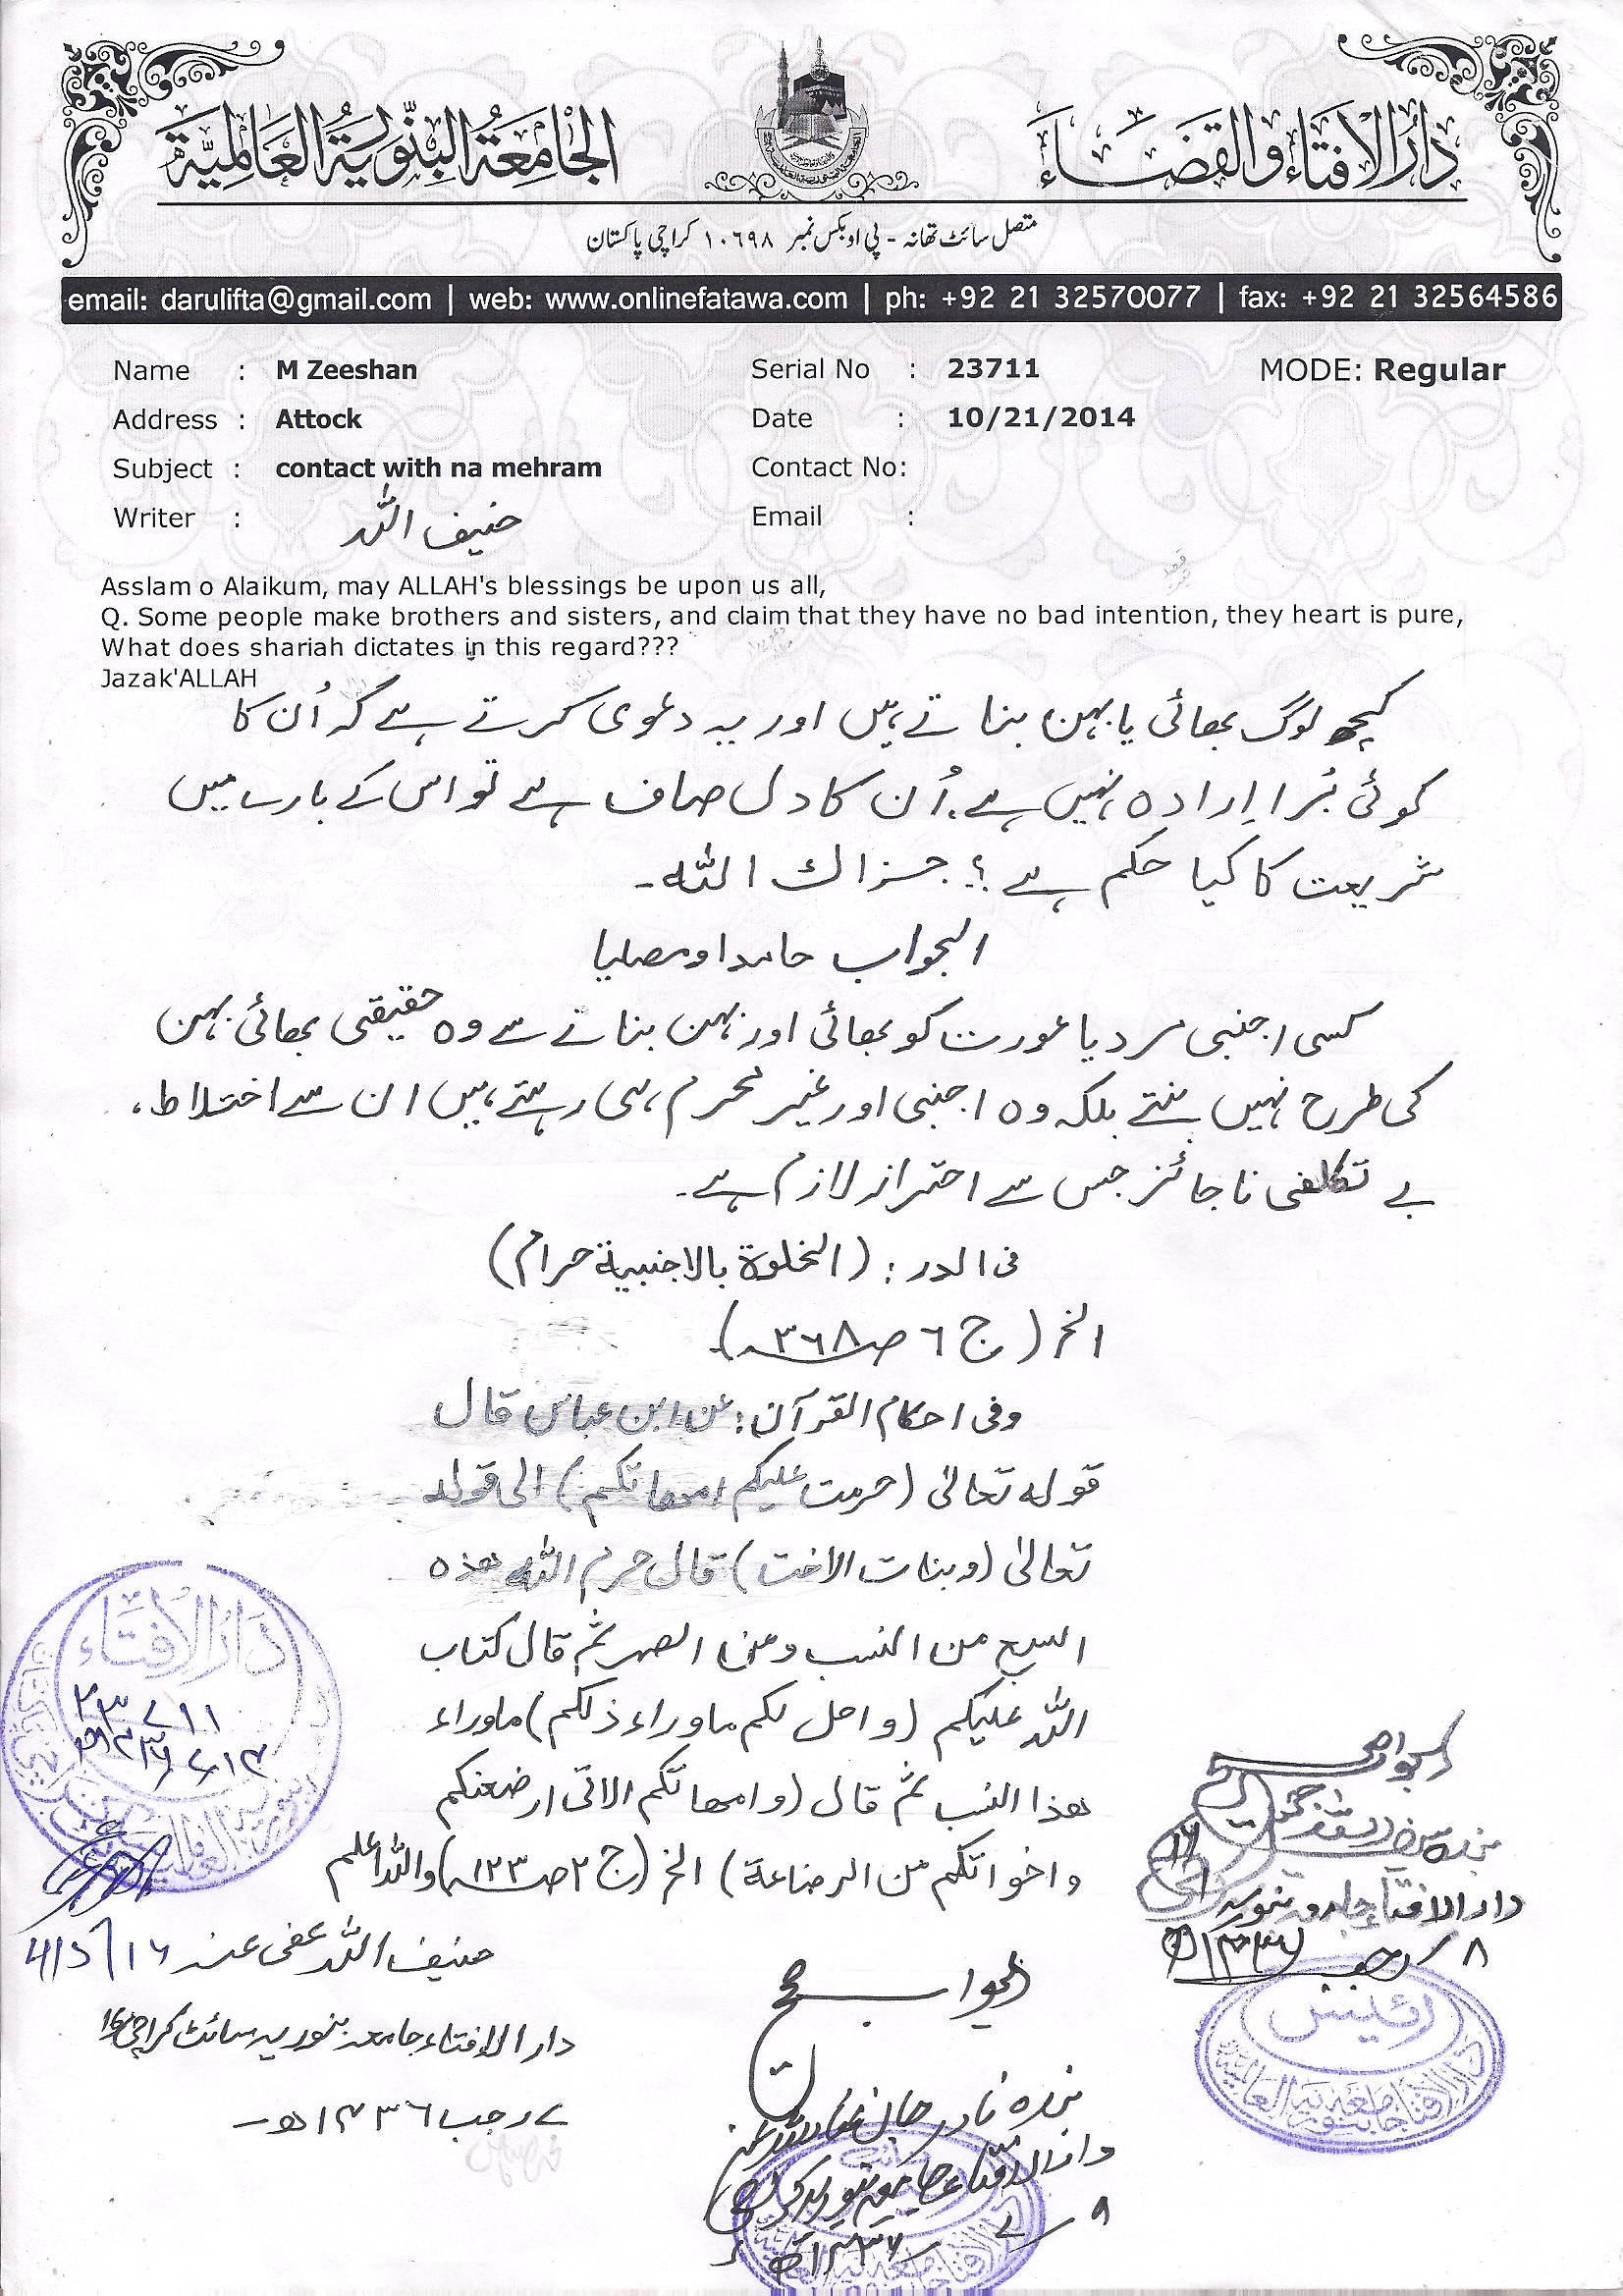 دَارُ الإفتَاء وَالقَضَاء
الجَامِعَةُ البِنّورِيَةُ العَالَمِيَّة
متصل سائٹ تھانہ - پی او بکس نمبر ۱۰۶۹۸ کراچی پاکستان
email: darulifta@gmail.com | web: www.onlinefatawa.com | ph: +92 21 32570077 | fax: +92 21 32564586
Name : M Zeeshan Serial No : 23711 MODE: Regular
Address : Attock Date : 10/21/2014
Subject : contact with na mehram Contact No:
Writer : حنیف اللہ Email :
Asslam o Alaikum, may ALLAH's blessings be upon us all,
Q. Some people make brothers and sisters, and claim that they have no bad intention, they heart is pure,
What does shariah dictates in this regard???
Jazak'ALLAH
کچھ لوگ بھائی یا بہن بناتے ہیں اور یہ دعوی کرتے ہے کہ اُن کا
کوئی بُرا اِرادہ نہیں ہے۔ اُن کا دل صاف ہے تو اس کے بارے میں
شریعت کا کیا حکم ہے؟ جزاك اللہ۔
الجواب حامدا ومصلیا
کسی اجنبی مرد یا عورت کو بھائی اور بہن بنانے سے وہ حقیقی بھائی بہن
کی طرح نہیں بنتے بلکہ وہ اجنبی اور غیر محرم ہی رہتے ہیں ان سے اختلاط،
بے تکلفی ناجائز جس سے احتراز لازم ہے۔
فی الدر: (الخلوة بالاجنبیة حرام)
الخ (ج ٦ صـ ٣٦٨)۔
وفی احکام القرآن: عن ابن عباس قال
قوله تعالیٰ (حرمت علیکم امھاتکم) الی قوله
تعالیٰ (وبنات الاخت) قال حرم اللہ ھذہ
السبع من النسب ومن الصھر ثم قال کتاب
اللہ علیکم (واحل لکم ماوراء ذلکم) ماوراء
ھذا النسب ثم قال (وامھاتکم الاتی ارضعنکم
واخواتکم من الرضاعة) الخ (ج ٢ صـ ١٢٣) واللہ اعلم
حنیف اللہ عفی عنہ
دار الإفتاء جامعہ بنوریہ سائٹ کراچی ١٦
٧ رجب ١٤٣٦ھ
دَارُ الإفتَاء
٢٣٧١١
الجواب صحیح
دار الافتاء جامعہ بنوریہ
٨ رجب
رئیس
دار الافتاء جامعہ بنوریہ العالمیة
الجواب صحیح
بندہ نادر جان عفا اللہ عنہ
دار الافتاء جامعہ بنوریہ کراچی